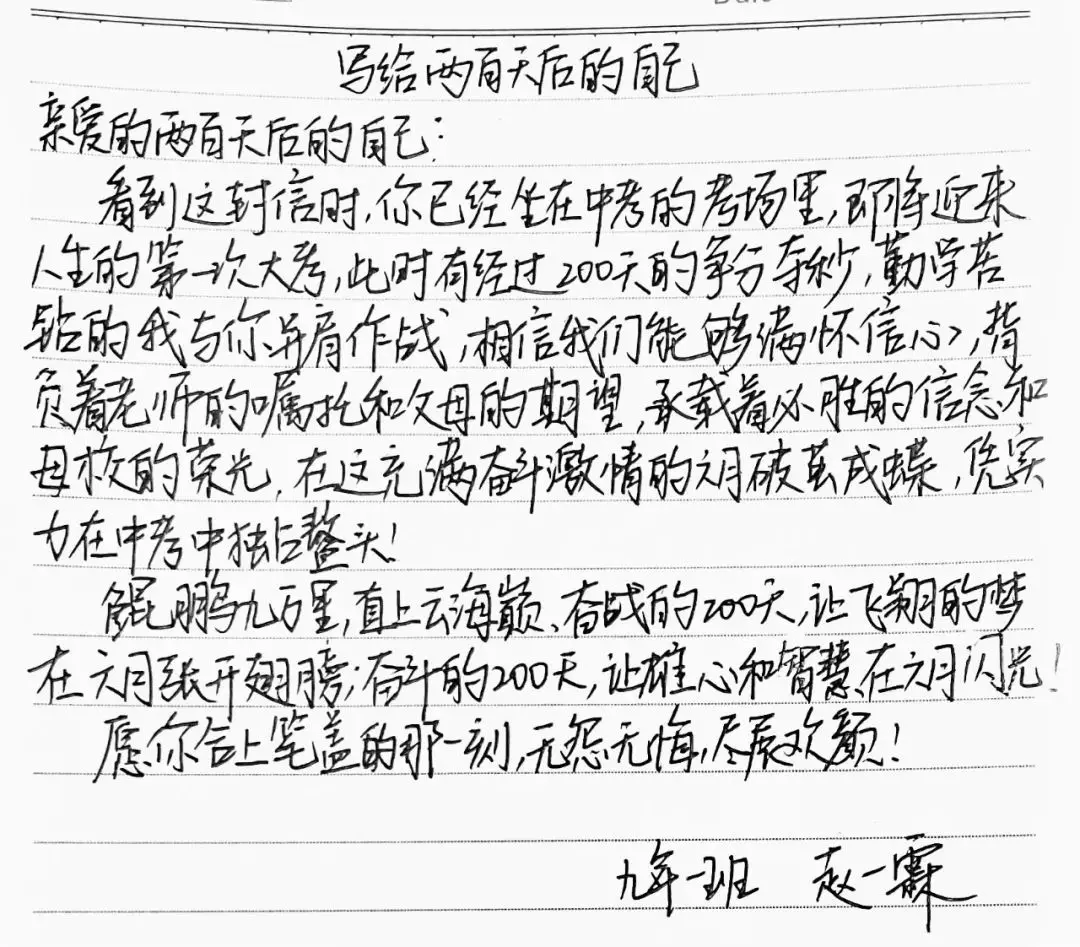 写给两百天后的自己
亲爱的两百天后的自己：
看到这封信时，你已经坐在中考的考场里，即将迎来
人生的第一次大考，此时有经过200天的争分夺秒，勤学苦
钻的我与你并肩作战，相信我们能够满怀信心，背
负着老师的嘱托和父母的期望，承载着必胜的信念和
母校的荣光，在这充满奋斗激情的六月破茧成蝶，凭实
力在中考中独占鳌头！
鲲鹏九万里，直上云海巅。奋战的200天，让飞翔的梦
在六月张开翅膀；奋斗的200天，让雄心和智慧在六月闪光！
愿你合上笔盖的那一刻，无怨无悔，尽展欢颜！
九年一班 赵一霖